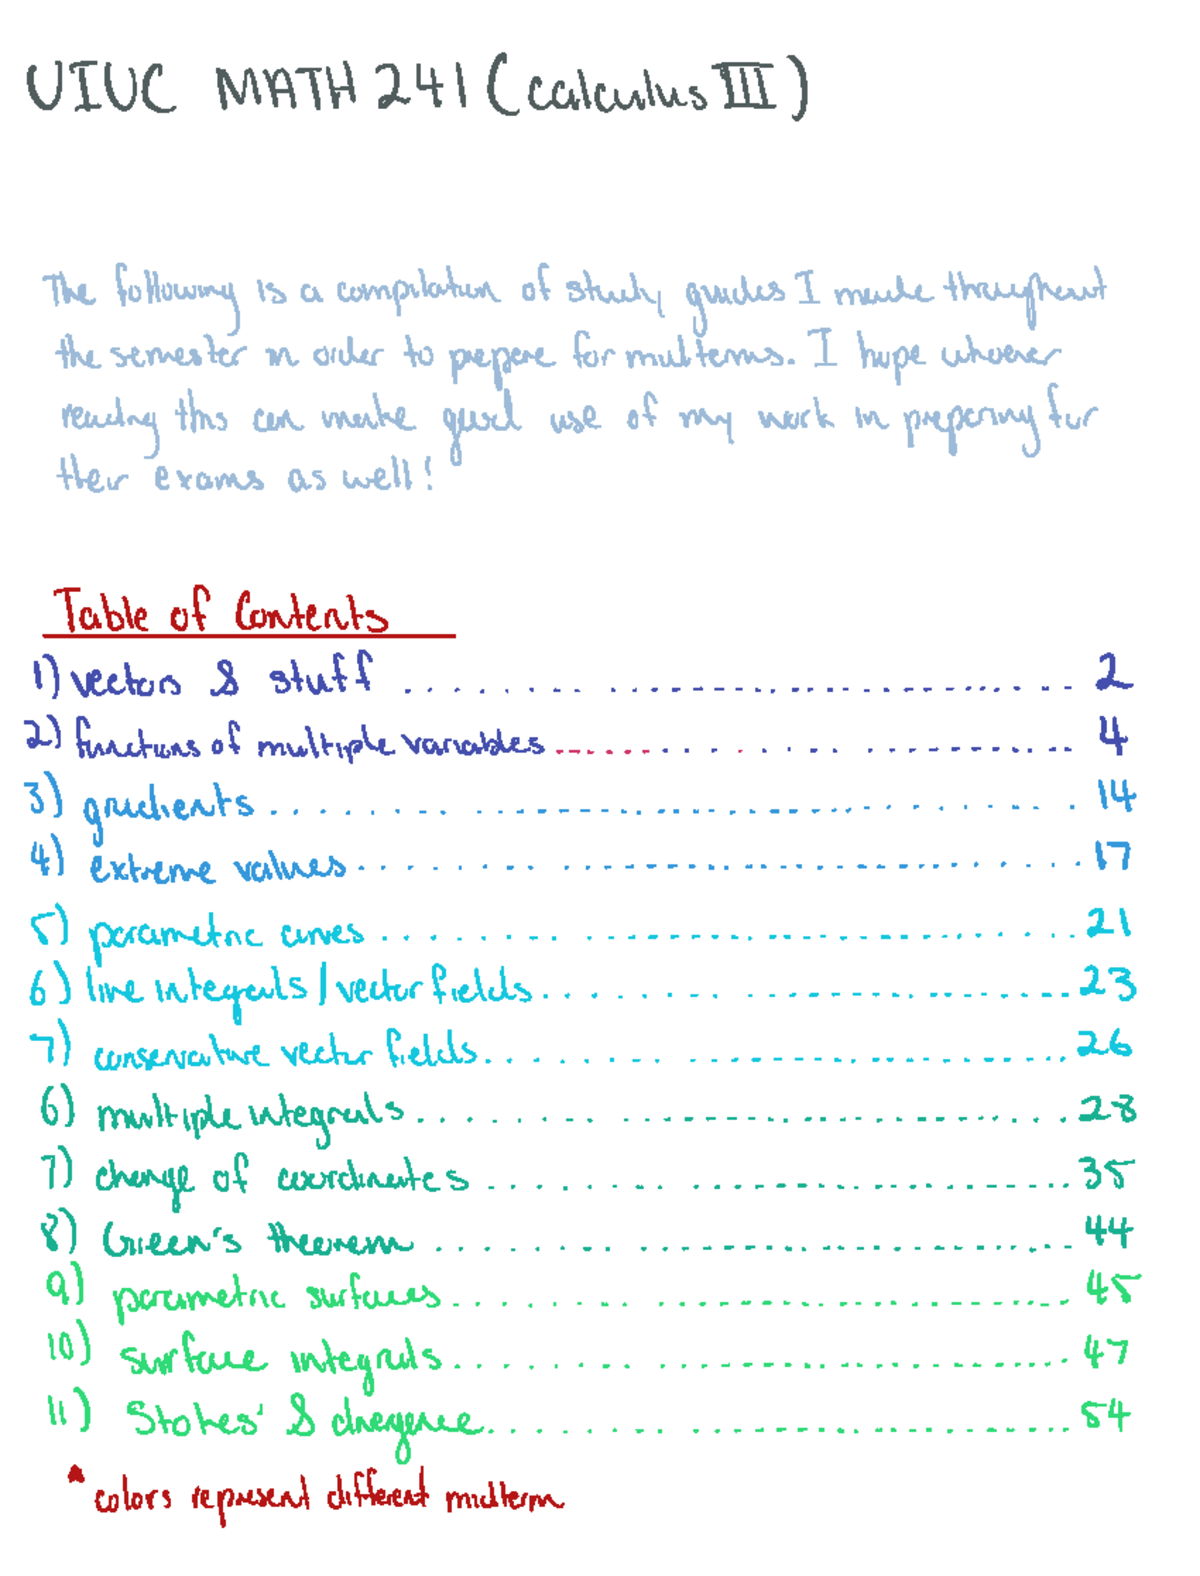 UIUC MATH 241 (calculus III)
The following is a compilation of study guides I made throughout
the semester in order to prepare for midterms. I hope whoever
reading this can make good use of my work in preparing for
their exams as well!
Table of Contents
1) vectors & stuff .......... 2
2) functions of multiple variables .......... 4
3) gradients .......... 14
4) extreme values .......... 17
5) parametric curves .......... 21
6) line integrals / vector fields .......... 23
7) conservative vector fields .......... 26
6) multiple integrals .......... 28
7) change of coordinates .......... 35
8) Green's theorem .......... 44
9) parametric surfaces .......... 45
10) surface integrals .......... 47
11) Stokes' & divergence .......... 54
* colors represent different midterm